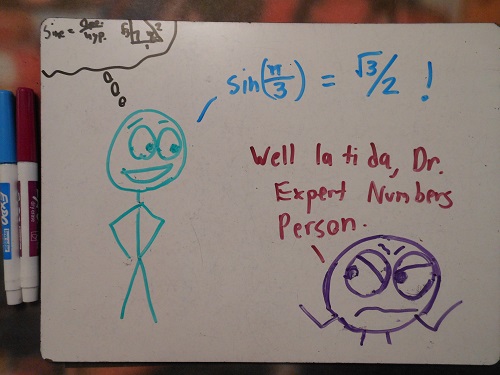 sine = opp./hyp. √3 2 1
sin(π/3) = √3/2 !
Well la ti da, Dr.
Expert Numbers
Person.
EXPO